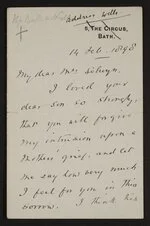 Address Wells
5, THE CIRCUS,
BATH.
14 Feb. 1898
My dear Mrs Selwyn.
I loved your
dear son so strongly,
that you will forgive
my intrusion upon a
Mothers' grief, and let
me say how very much
I feel for you in this
sorrow. I think his